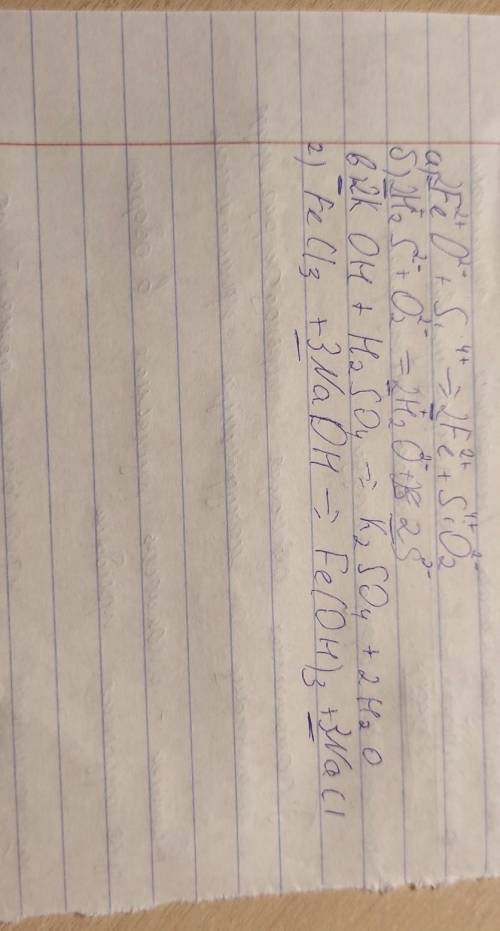 а) 2Fe²⁺O²⁻ + Si⁴⁺ = 2Fe²⁺ + Si⁴⁺O₂²⁻
б) 2H₂⁺S²⁻ + O₂²⁻ = 2H₂⁺O²⁻ + 2S²⁻
в) 2KOH + H₂SO₄ = K₂SO₄ + 2H₂O
г) FeCl₃ + 3NaOH = Fe(OH)₃ + 3NaCl